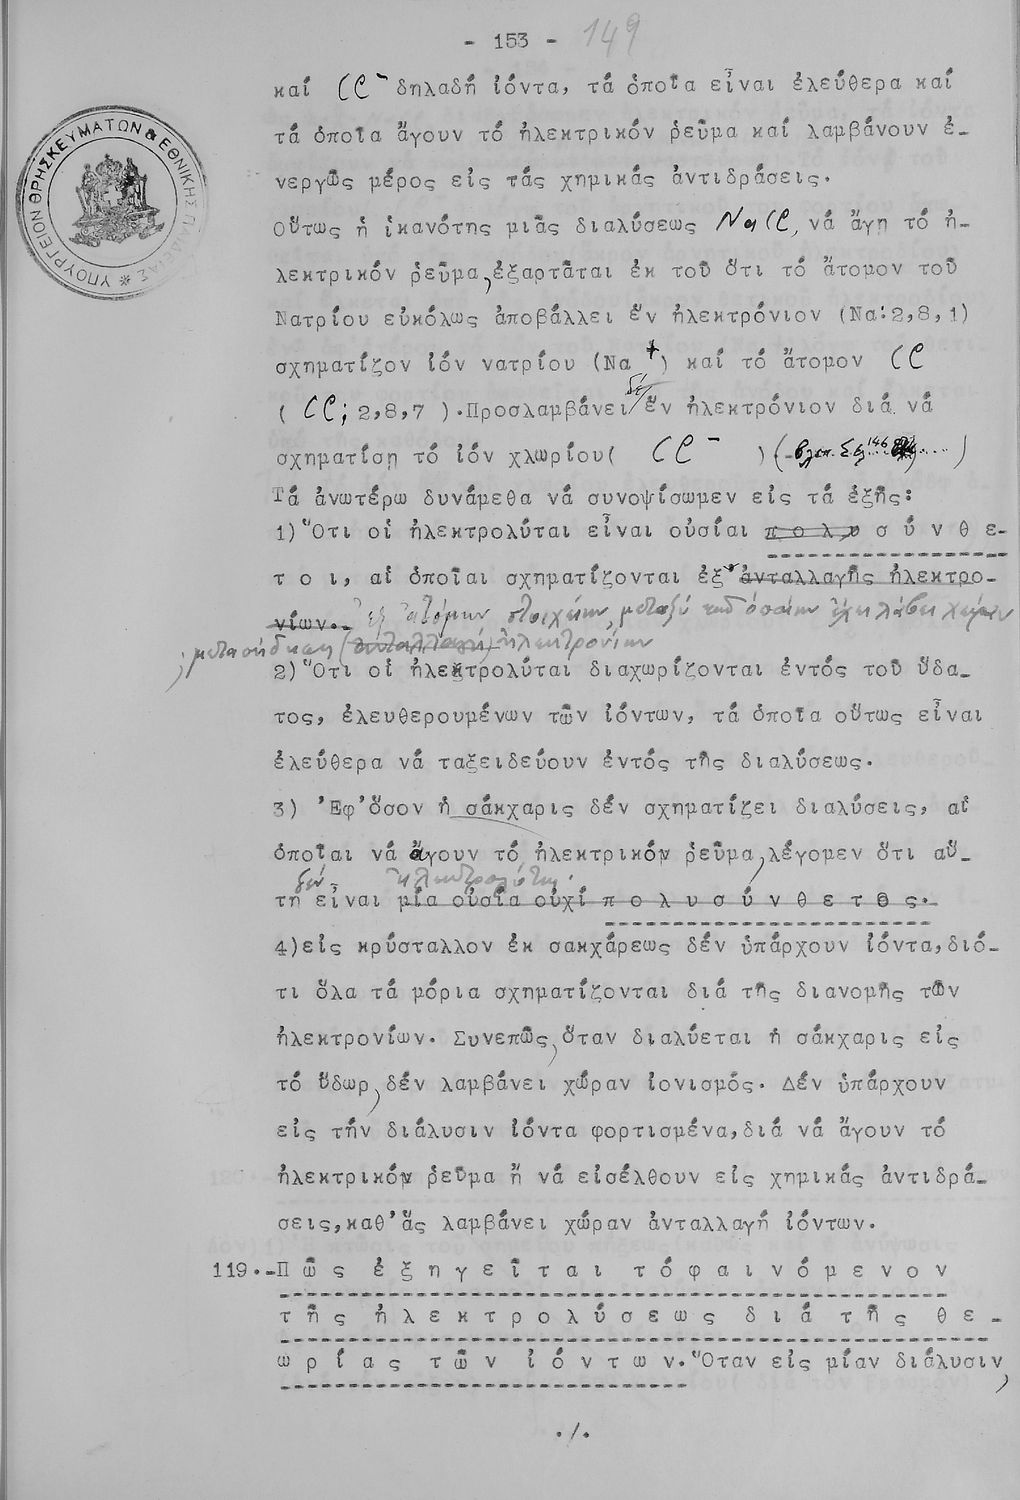 - 153 - 149
καί Cl⁻ δηλαδή ἰόντα, τά ὁποῖα εἶναι ἐλεύθερα καί
τά ὁποῖα ἄγουν τό ἠλεκτρικόν ῥεῦμα καί λαμβάνουν ἐ-
νεργῶς μέρος εἰς τάς χημικάς ἀντιδράσεις.
Οὕτως ἡ ἱκανότης μιᾶς διαλύσεως NaCl, νά ἄγῃ τό ἠ-
λεκτρικόν ῥεῦμα, ἐξαρτᾶται ἐκ τοῦ ὅτι τό ἄτομον τοῦ
Νατρίου εὐκόλως ἀποβάλλει ἕν ἠλεκτρόνιον (Να:2,8,1)
σχηματίζον ἰόν νατρίου (Να⁺) καί τό ἄτομον Cl
( Cl; 2,8,7 ).Προσλαμβάνει δέ ἕν ἠλεκτρόνιον διά νά
σχηματίσῃ τό ἰόν χλωρίου( Cl⁻ ) (βλεπ. Σελ 146 .....)
Τά ἀνωτέρω δυνάμεθα νά συνοψίσωμεν εἰς τά ἑξῆς:
1) Ὅτι οἱ ἠλεκτρολύται εἶναι οὐσίαι π ο λ υ σ ύ ν θ ε-
τ ο ι, αἱ ὁποῖαι σχηματίζονται ἐξ ἀνταλλαγῆς ἠλεκτρο-
νίων.- ἐξ ἀτόμων στοιχείων, μεταξύ τῶν ὁποίων ἔχει λάβει χώραν
μετακίνησις (ἀνταλλαγή) ἠλεκτρονίων
2) Ὅτι οἱ ἠλεκτρολύται διαχωρίζονται ἐντός τοῦ ὕδα-
τος, ἐλευθερουμένων τῶν ἰόντων, τά ὁποῖα οὕτως εἶναι
ἐλεύθερα νά ταξειδεύουν ἐντός τῆς διαλύσεως.
3) Ἐφ'ὅσον ἡ σάκχαρις δέν σχηματίζει διαλύσεις, αἱ
ὁποῖαι νά ἄγουν τό ἠλεκτρικόν ῥεῦμα, λέγομεν ὅτι αὕ-
δέν ἠλεκτρολύτης.
τη εἶναι μία οὐσία οὐχί π ο λ υ σ ύ ν θ ε τ ο ς.
4)εἰς κρύσταλλον ἐκ σακχάρεως δέν ὑπάρχουν ἰόντα,διό-
τι ὅλα τά μόρια σχηματίζονται διά τῆς διανομῆς τῶν
ἠλεκτρονίων. Συνεπῶς, ὅταν διαλύεται ἡ σάκχαρις εἰς
τό ὕδωρ, δέν λαμβάνει χώραν ἰονισμός. Δέν ὑπάρχουν
εἰς τήν διάλυσιν ἰόντα φορτισμένα,διά νά ἄγουν τό
ἠλεκτρικόν ῥεῦμα ἤ νά εἰσέλθουν εἰς χημικάς ἀντιδρά-
σεις,καθ'ἅς λαμβάνει χώραν ἀνταλλαγή ἰόντων.
119.-Π ῶ ς ἐ ξ η γ ε ῖ τ α ι τ ό φ α ι ν ό μ ε ν ο ν
τ ῆ ς ἠ λ ε κ τ ρ ο λ ύ σ ε ω ς δ ι ά τ ῆ ς θ ε -
ω ρ ί α ς τ ῶ ν ἰ ό ν τ ω ν. Ὅταν εἰς μίαν διάλυσιν,
./.
ΥΠΟΥΡΓΕΙΟΝ ΘΡΗΣΚΕΥΜΑΤΩΝ & ΕΘΝΙΚΗΣ ΠΑΙΔΕΙΑΣ